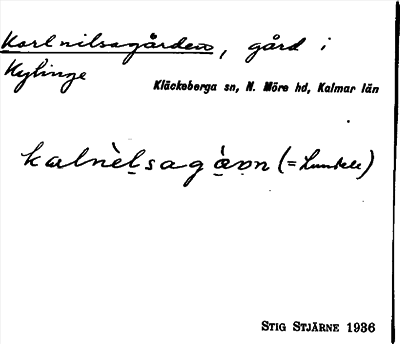 Karlnilsagården, gård i
Kylinge
Kläckeberga sn, N. Möre hd, Kalmar län
kalnèlsagàon (=Lunkele)
STIG STJÄRNE 1936